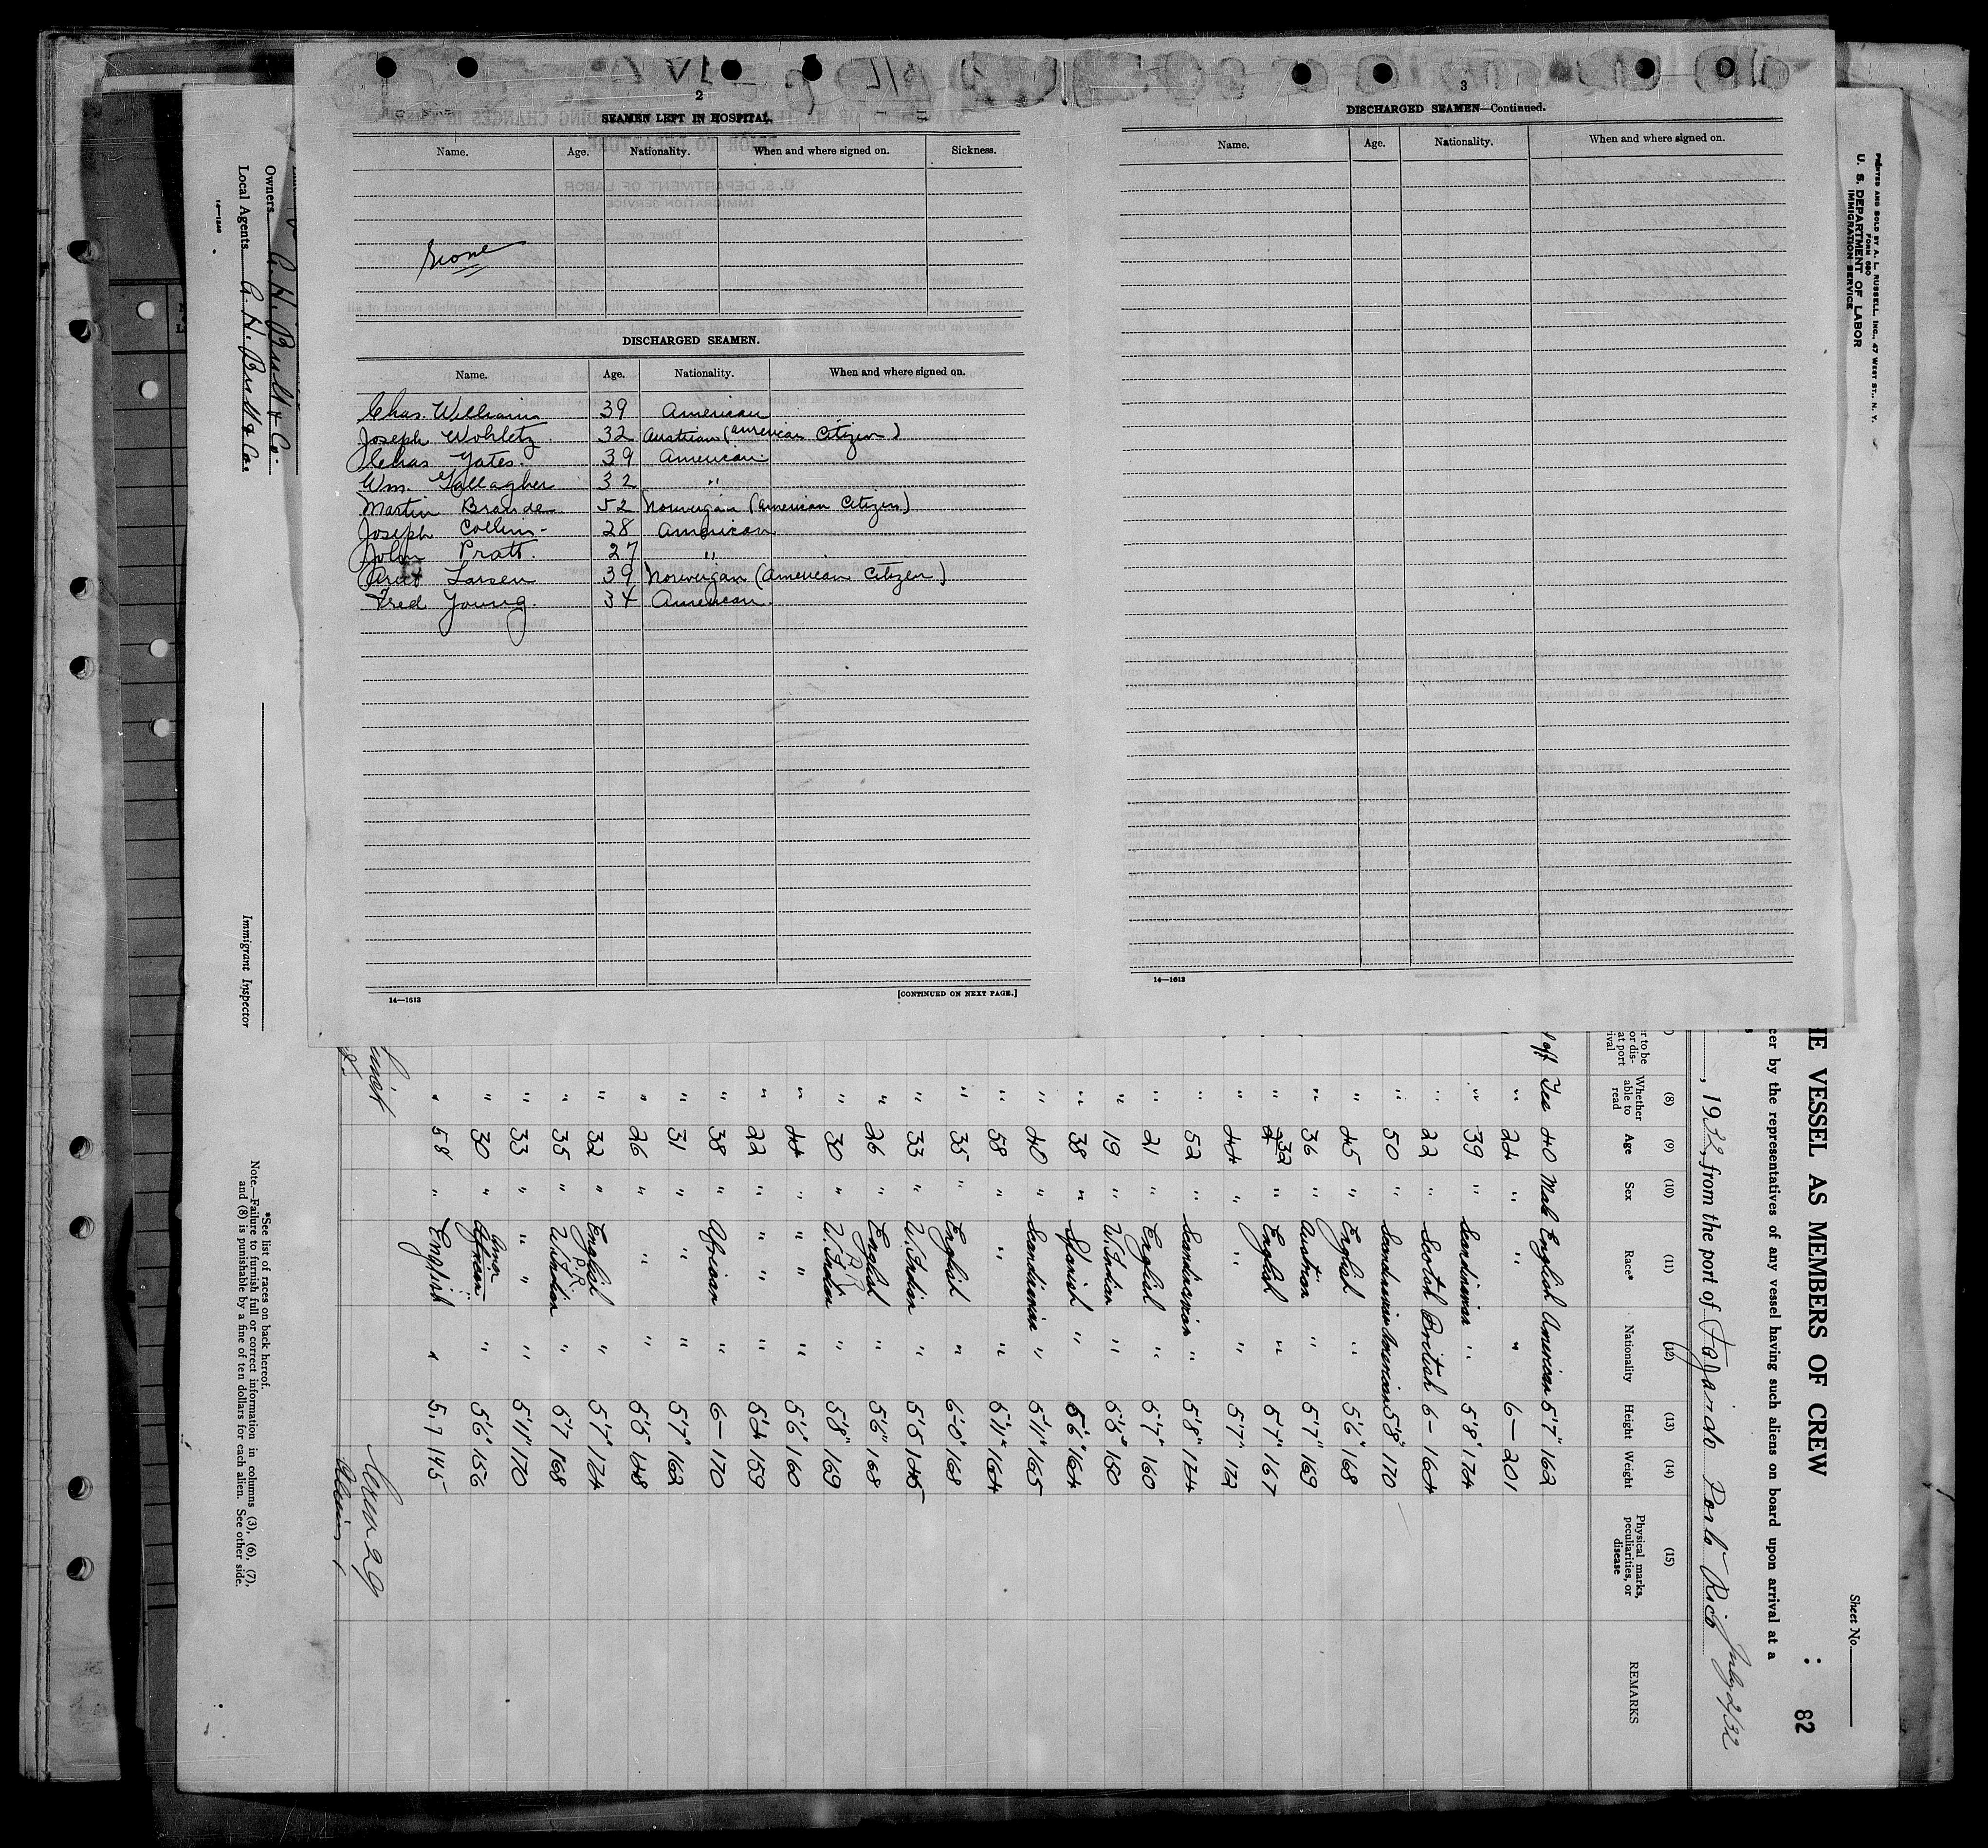 2
SEAMEN LEFT IN HOSPITAL.
Name. Age. Nationality. When and where signed on. Sickness.
None
DISCHARGED SEAMEN.
Name. Age. Nationality. When and where signed on.
Chas. Williams 39 American
Joseph Wohletz 32 Austrian (American Citizen)
Chas Yates. 39 American
Wm. Gallagher 32 "
Martin Brande 52 Norwegian (American Citizen)
Joseph Collins - 28 American
John Pratt. 27 "
Larsen 39 Norwegian (American Citizen)
Fred Young. 34 American.
14—1613 [CONTINUED ON NEXT PAGE.]
3
DISCHARGED SEAMEN—Continued.
Name. Age. Nationality. When and where signed on.
14—1613
PRINTED AND SOLD BY A. L. RUSSELL, INC., 47 WEST ST., N. Y.
FORM 680
U. S. DEPARTMENT OF LABOR
IMMIGRATION SERVICE
Sheet No.
82
HE VESSEL AS MEMBERS OF CREW
cer by the representatives of any vessel having such aliens on board upon arrival at a
, 1922, from the port of Fajardo Porto Rico July 2/22
r to be or dis- at port rival
(8) Whether able to read
(9) Age
(10) Sex
(11) Race*
(12) Nationality
(13) Height
(14) Weight
(15) Physical marks, peculiarities, or disease
REMARKS
off Yes 40 Male English American 5'7" 162
" 24 " " " 6— 201
" 39 " Scandinavian " 5'8" 174
" 22 " Scotch British 6— 164
" 50 " Scandinavian American 5'8" 170
" 45 " English " 5'6" 168
" 36 " Austrian " 5'7" 169
" 32 " English " 5'7" 167
" 44 " " " 5'7" 172
" 52 " Scandinavian " 5'8" 174
" 21 " English " 5'7" 160
" 19 " W. Indian " 5'5" 150
" 38 " Spanish " 5'6" 164
" 40 " Scandinavian " 5'11" 165
" 58 " " " 5'11" 164
" 35 " English " 6'0" 168
" 33 " W. Indian " 5'5 145
" 26 " English " 5'6" 168
" 30 " P.R. W. Indian " 5'8" 169
" 44 " " " 5'6" 160
" 22 " " " 5'4 159
" 38 " African " 6— 170
" 31 " " " 5'7" 162
" 26 " " " 5'5" 148
" 32 " English " 5'7" 174
" 35 " P.R. W. Indian " 5'7 168
" 33 " " " 5'11" 170
" 30 " African " 5'6" 156
" 58 " English " 5.7 145
Crew 29
Aliens 1
*See list of races on back hereof.
Note.—Failure to furnish full or correct information in columns (3), (6), (7), and (8) is punishable by a fine of ten dollars for each alien. See other side.
Immigrant Inspector
Owners A. H. Bull & Co.
Local Agents A. H. Bull & Co.
14—1240